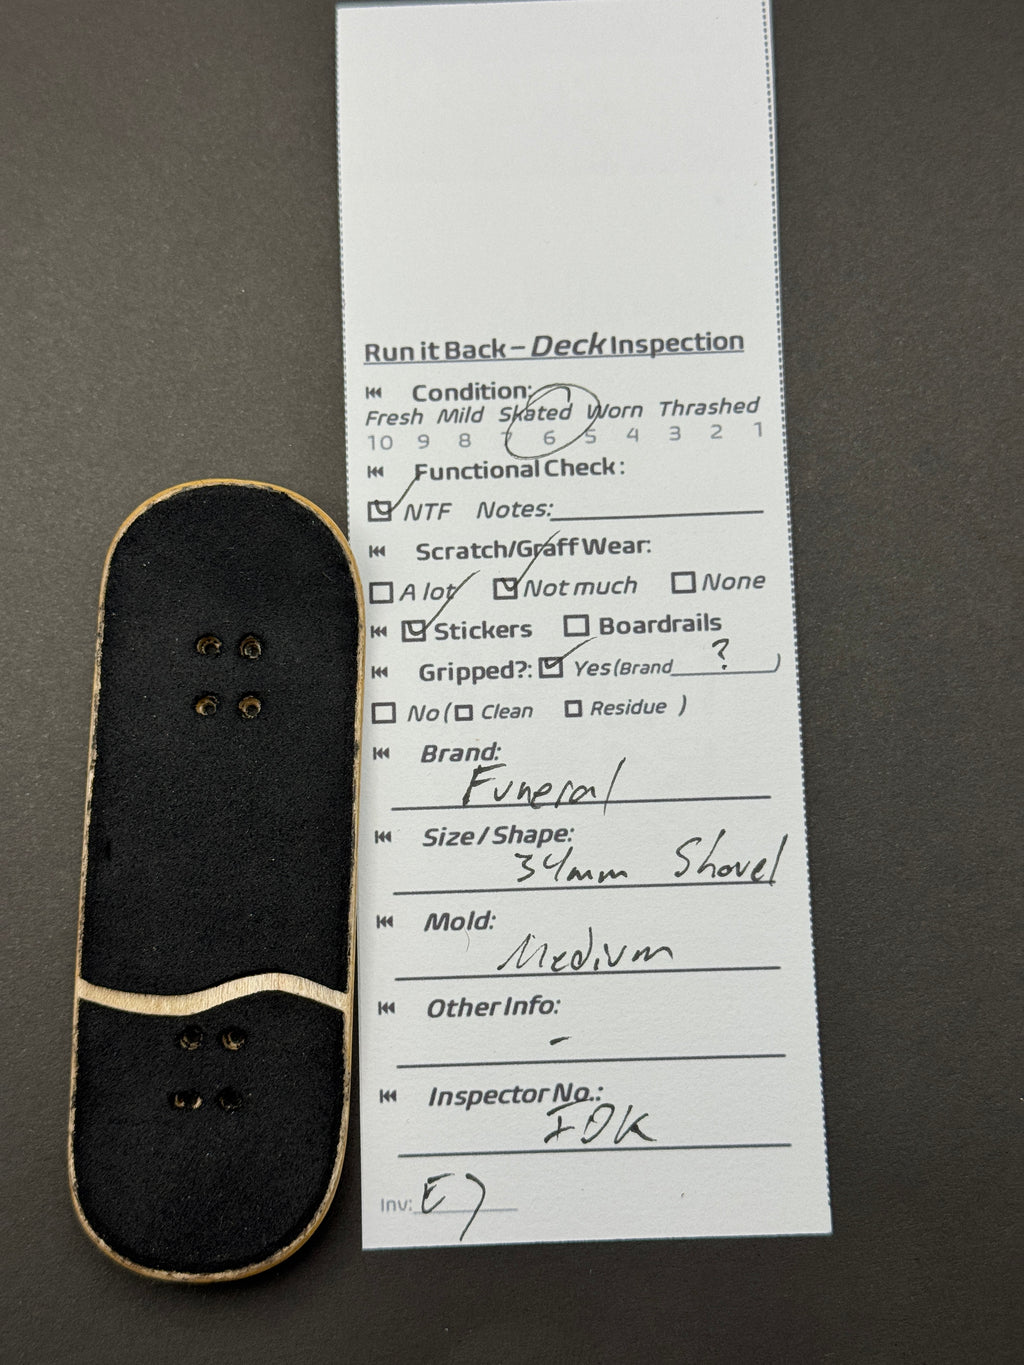 Run it Back – Deck Inspection
Condition:
Fresh Mild Skated Worn Thrashed
10 9 8 7 6 5 4 3 2 1
Functional Check:
NTF Notes:
Scratch/Graff Wear:
A lot Not much None
Stickers Boardrails
Gripped?: Yes (Brand ? )
No ( Clean Residue )
Brand:
Funeral
Size / Shape:
34mm Shovel
Mold:
Medium
Other Info:
-
Inspector No.:
IDK
Inv: E7